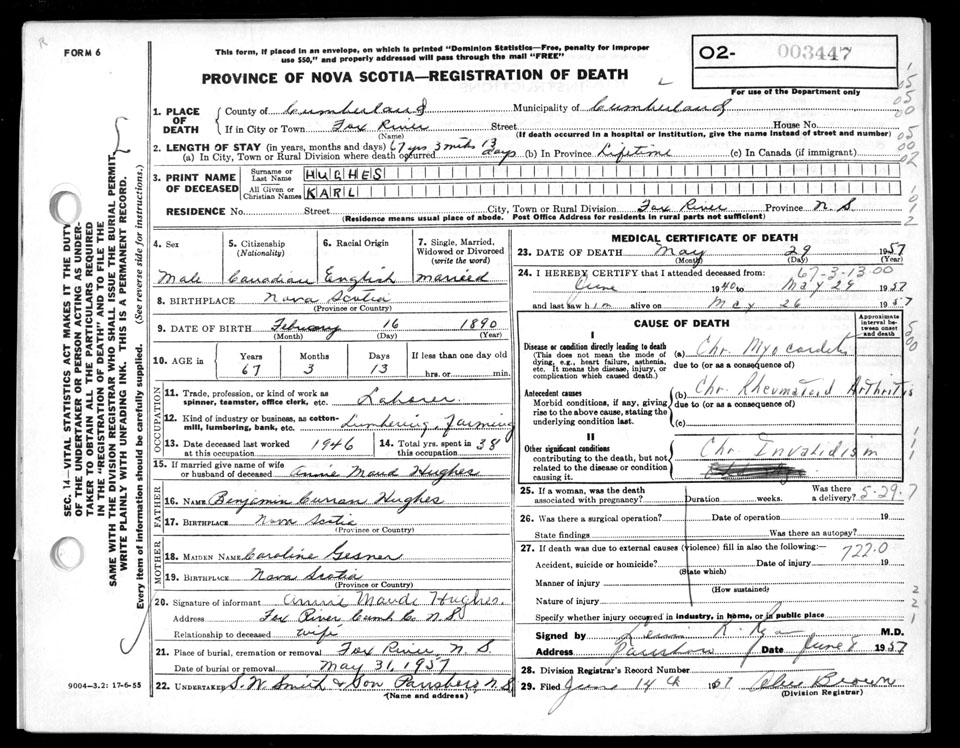 R
FORM 6
This form, if placed in an envelope, on which is printed "Dominion Statistics—Free, penalty for improper
use $50," and properly addressed will pass through the mail "FREE"
PROVINCE OF NOVA SCOTIA—REGISTRATION OF DEATH
02- 003447
For use of the Department only
1. PLACE OF DEATH
County of Cumberland Municipality of Cumberland
If in City or Town Fox River Street House No.
(Name) (If death occurred in a hospital or institution, give the name instead of street and number)
2. LENGTH OF STAY (in years, months and days) 67 yrs 3 mths 13 days
(a) In City, Town or Rural Division where death occurred (b) In Province Lifetime (c) In Canada (if immigrant)
3. PRINT NAME OF DECEASED
Surname or Last Name HUGHES
All Given or Christian Names KARL
RESIDENCE No. Street City, Town or Rural Division Fox River Province N. S.
(Residence means usual place of abode. Post Office Address for residents in rural parts not sufficient)
4. Sex Male
5. Citizenship (Nationality) Canadian
6. Racial Origin English
7. Single, Married, Widowed or Divorced (write the word) married
8. BIRTHPLACE Nova Scotia
(Province or Country)
9. DATE OF BIRTH February 16 1890
(Month) (Day) (Year)
10. AGE in Years Months Days If less than one day old
67 3 13 hrs. or min.
OCCUPATION
11. Trade, profession, or kind of work as spinner, teamster, office clerk, etc. Laborer
12. Kind of industry or business, as cotton-mill, lumbering, bank, etc. Lumbering, Farming
13. Date deceased last worked at this occupation 1946
14. Total yrs. spent in this occupation 38
15. If married give name of wife or husband of deceased Annie Maud Hughes
FATHER
16. NAME Benjamin Curran Hughes
17. BIRTHPLACE Nova Scotia
(Province or Country)
MOTHER
18. MAIDEN NAME Caroline Gesner
19. BIRTHPLACE Nova Scotia
(Province or Country)
20. Signature of informant Annie Maude Hughes.
Address Fox River, Cumb. Co. N. S.
Relationship to deceased wife
21. Place of burial, cremation or removal Fox River, N. S.
Date of burial or removal May 31, 1957
22. UNDERTAKER S. W. Smith & Son Parrsboro, N. S.
(Name and address)
MEDICAL CERTIFICATE OF DEATH
23. DATE OF DEATH May 29 1957
(Month) (Day) (Year)
67-3-13-00
24. I HEREBY CERTIFY that I attended deceased from:
June 1940 to May 29 1957
and last saw him alive on May 26 1957
CAUSE OF DEATH
Approximate interval between onset and death
I
Disease or condition directly leading to death
(This does not mean the mode of dying, e.g., heart failure, asthenia, etc. It means the disease, injury, or complication which caused death.)
(a) Chr. Myocardit
due to (or as a consequence of)
Antecedent causes
Morbid conditions, if any, giving rise to the above cause, stating the underlying condition last
(b) Chr. Rheumatoid Arthritis
due to (or as a consequence of)
(c)
II
Other significant conditions
contributing to the death, but not related to the disease or condition causing it.
Chr. Invalidism
25. If a woman, was the death associated with pregnancy? Duration weeks. Was there a delivery?
5-29-7
26. Was there a surgical operation? Date of operation 19
State findings Was there an autopsy?
27. If death was due to external causes (violence) fill in also the following:—
722.0
Accident, suicide or homicide? Date of injury 19
(State which)
Manner of injury
(How sustained)
Nature of injury
Specify whether injury occurred in industry, in home, or in public place
Signed by M.D.
Address Date June 1957
28. Division Registrar's Record Number
29. Filed June 14th 1957 Brown
(Division Registrar)
SEC. 14—VITAL STATISTICS ACT MAKES IT THE DUTY
OF THE UNDERTAKER OR PERSON ACTING AS UNDER-
TAKER TO OBTAIN ALL THE PARTICULARS REQUIRED
IN THE "REGISTRATION OF DEATH" AND TO FILE THE
SAME WITH THE DIVISION REGISTRAR WHO SHALL ISSUE THE BURIAL PERMIT.
WRITE PLAINLY WITH UNFADING INK. THIS IS A PERMANENT RECORD.
Every item of information should be carefully supplied. (See reverse side for instructions.)
9004—3.2: 17-6-55